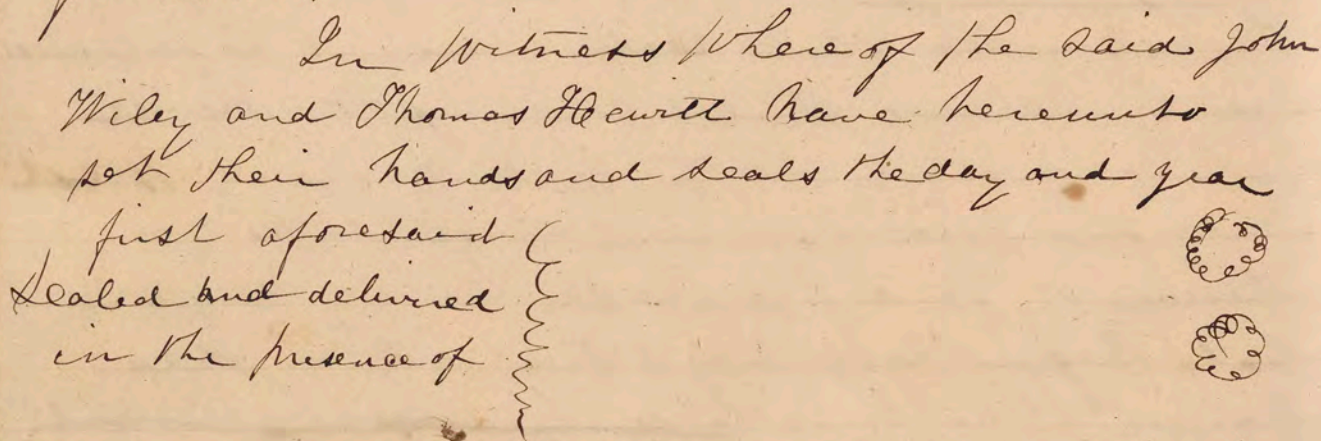 In Witness Where of the said John
Wiley and Thomas Hewitt have hereunto
set their hands and seals the day and year
first aforesaid
Sealed and delivered
in the presence of